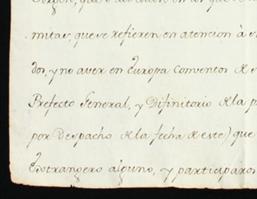 mitas, que se refieren en atencion à
dor, y no aver en Europa Conventos de
Prefecto General, y Difinitorio de la p
por Despacho de la fecha de este) que
Extrangero alguno, y participaron